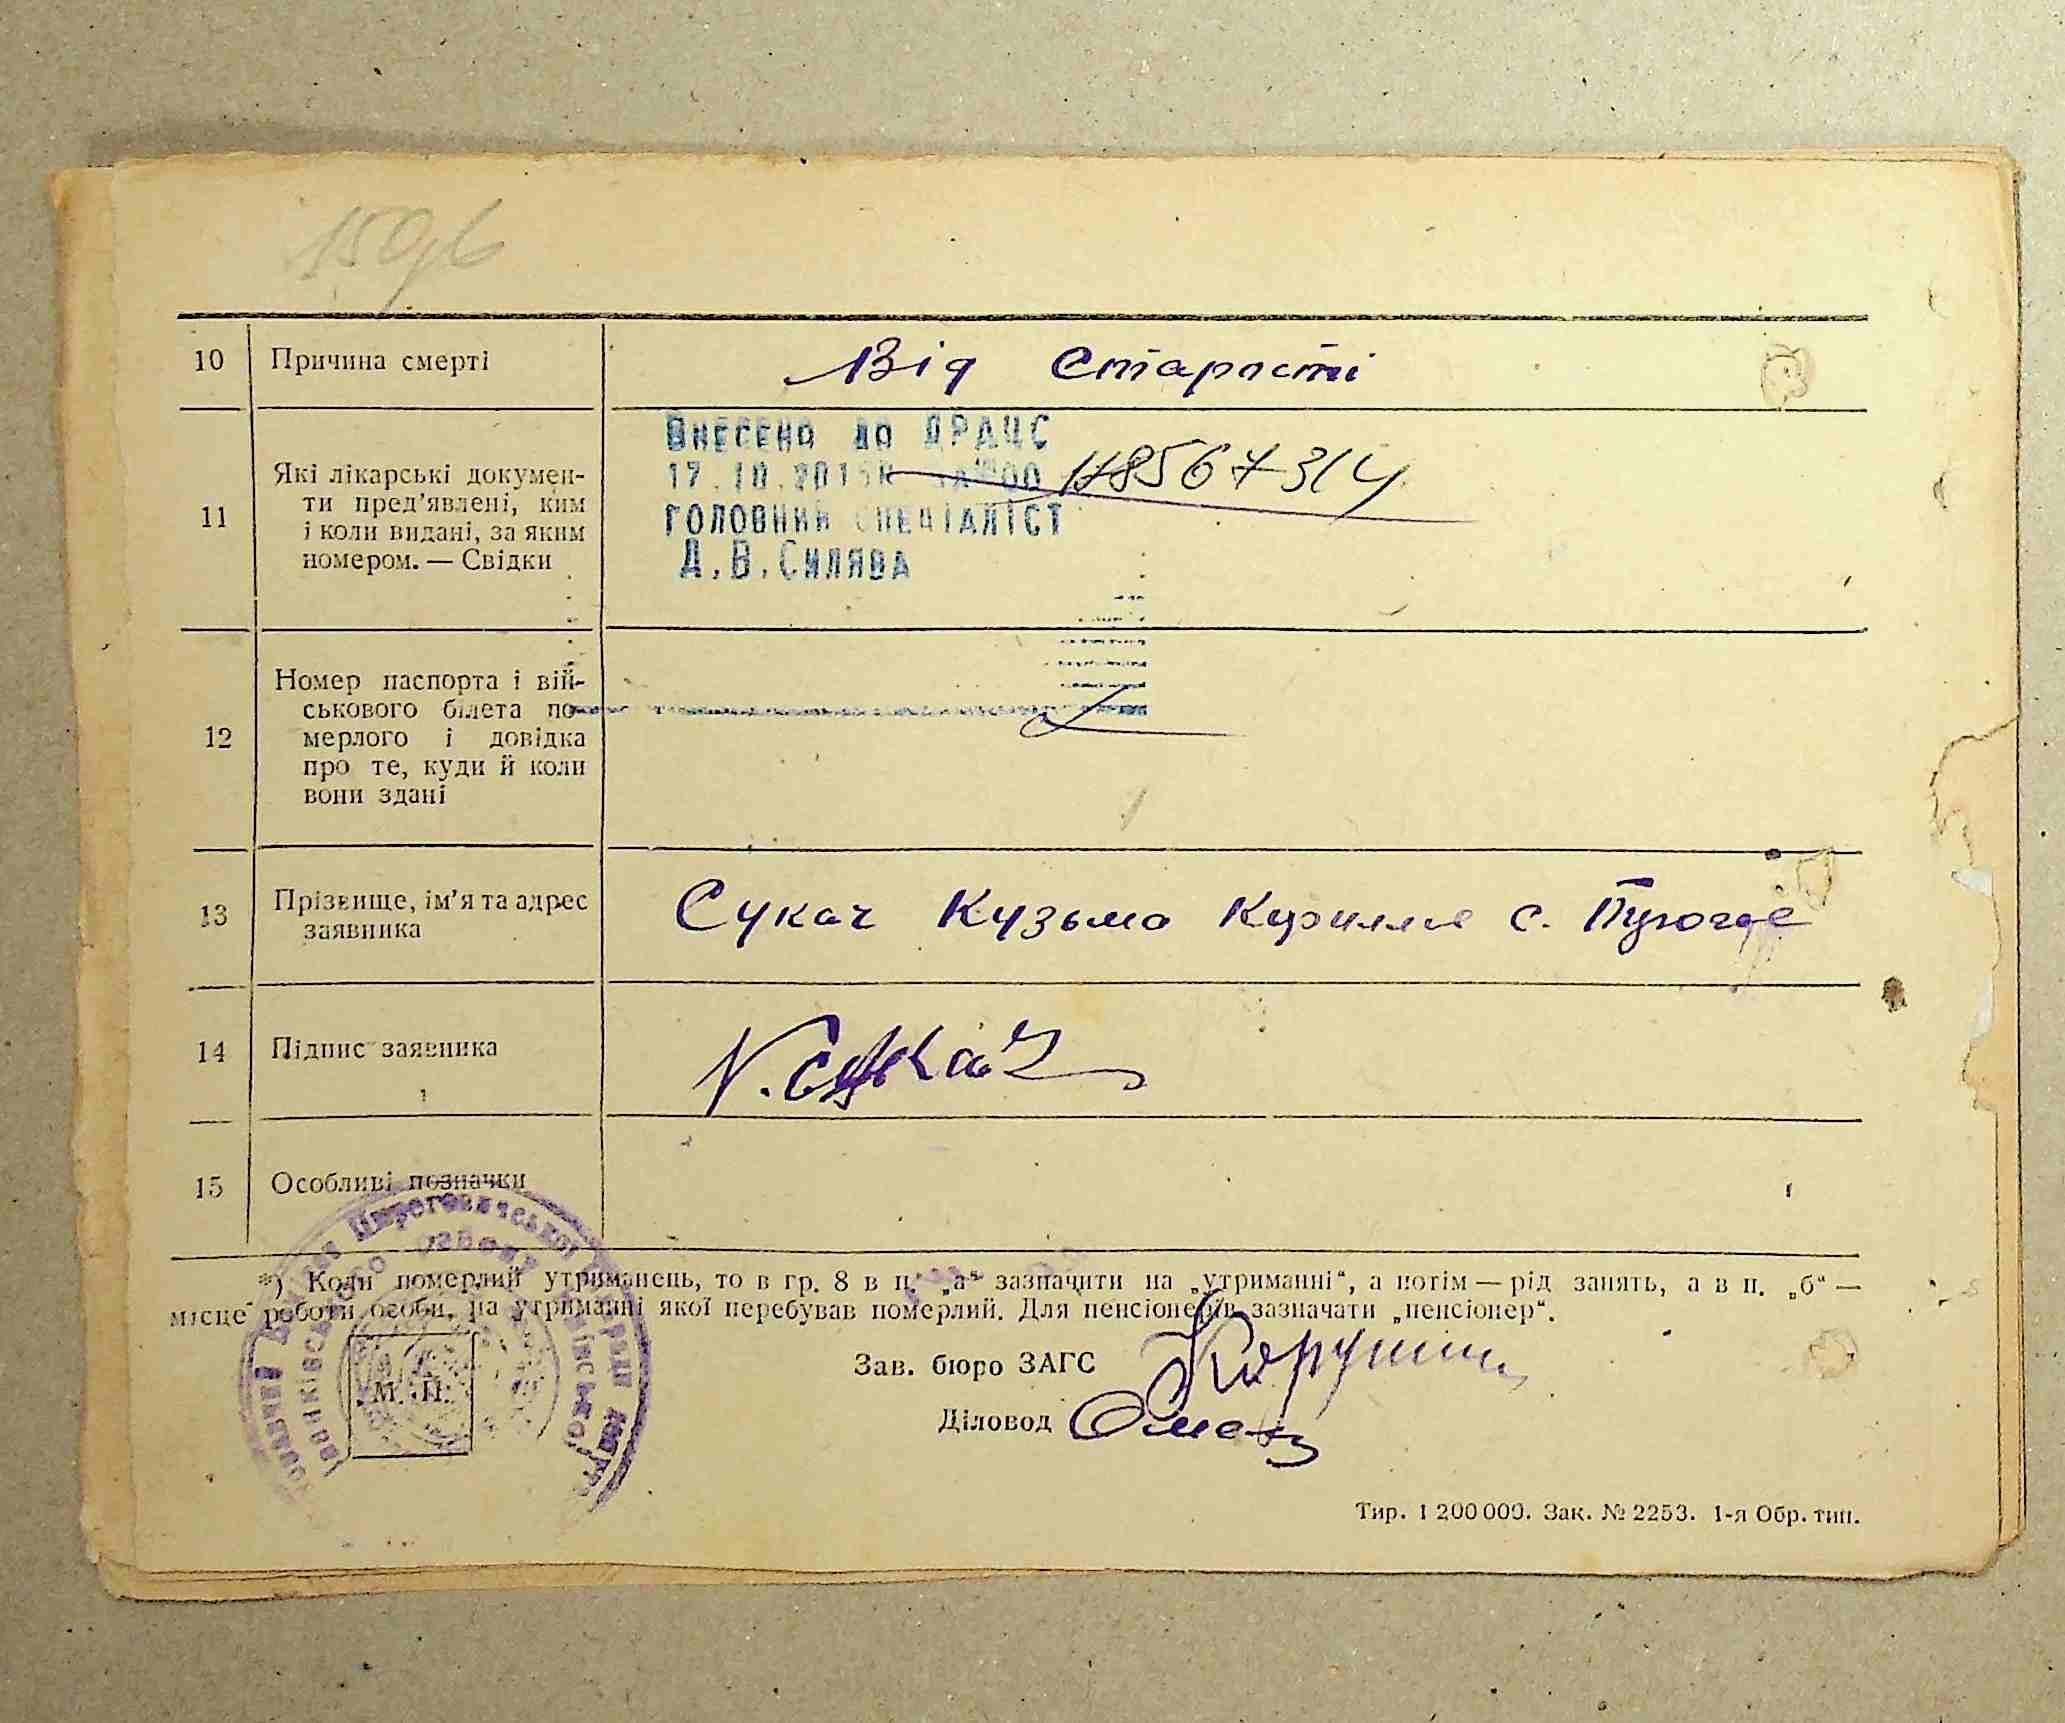 10 Причина смерті Від Старости
11 Які лікарські докумен-
ти пред'явлені, ким
і коли видані, за яким
номером. — Свідки
Внесено до ДРАЦС
17.10.2015
ГОЛОВНИЙ СПЕЦІАЛІСТ
Д.В.Силява
12 Номер паспорта і вій-
ськового білета по-
мерлого і довідка
про те, куди й коли
вони здані
13 Прізвище, ім'я та адрес
заявника
Сукач Кузьма с.
14 Підпис заявника Сукач
15 Особливі позначки
*) Коли померлий утриманець, то в гр. 8 в п. „а“ зазначити на „утриманні“, а потім — рід занять, а в п. „б“ —
місце роботи особи, на утриманні якої перебував померлий. Для пенсіонерів зазначати „пенсіонер“.
М. П.
Зав. бюро ЗАГС
Діловод
Тир. 1 200 000. Зак. № 2253. 1-я Обр. тип.